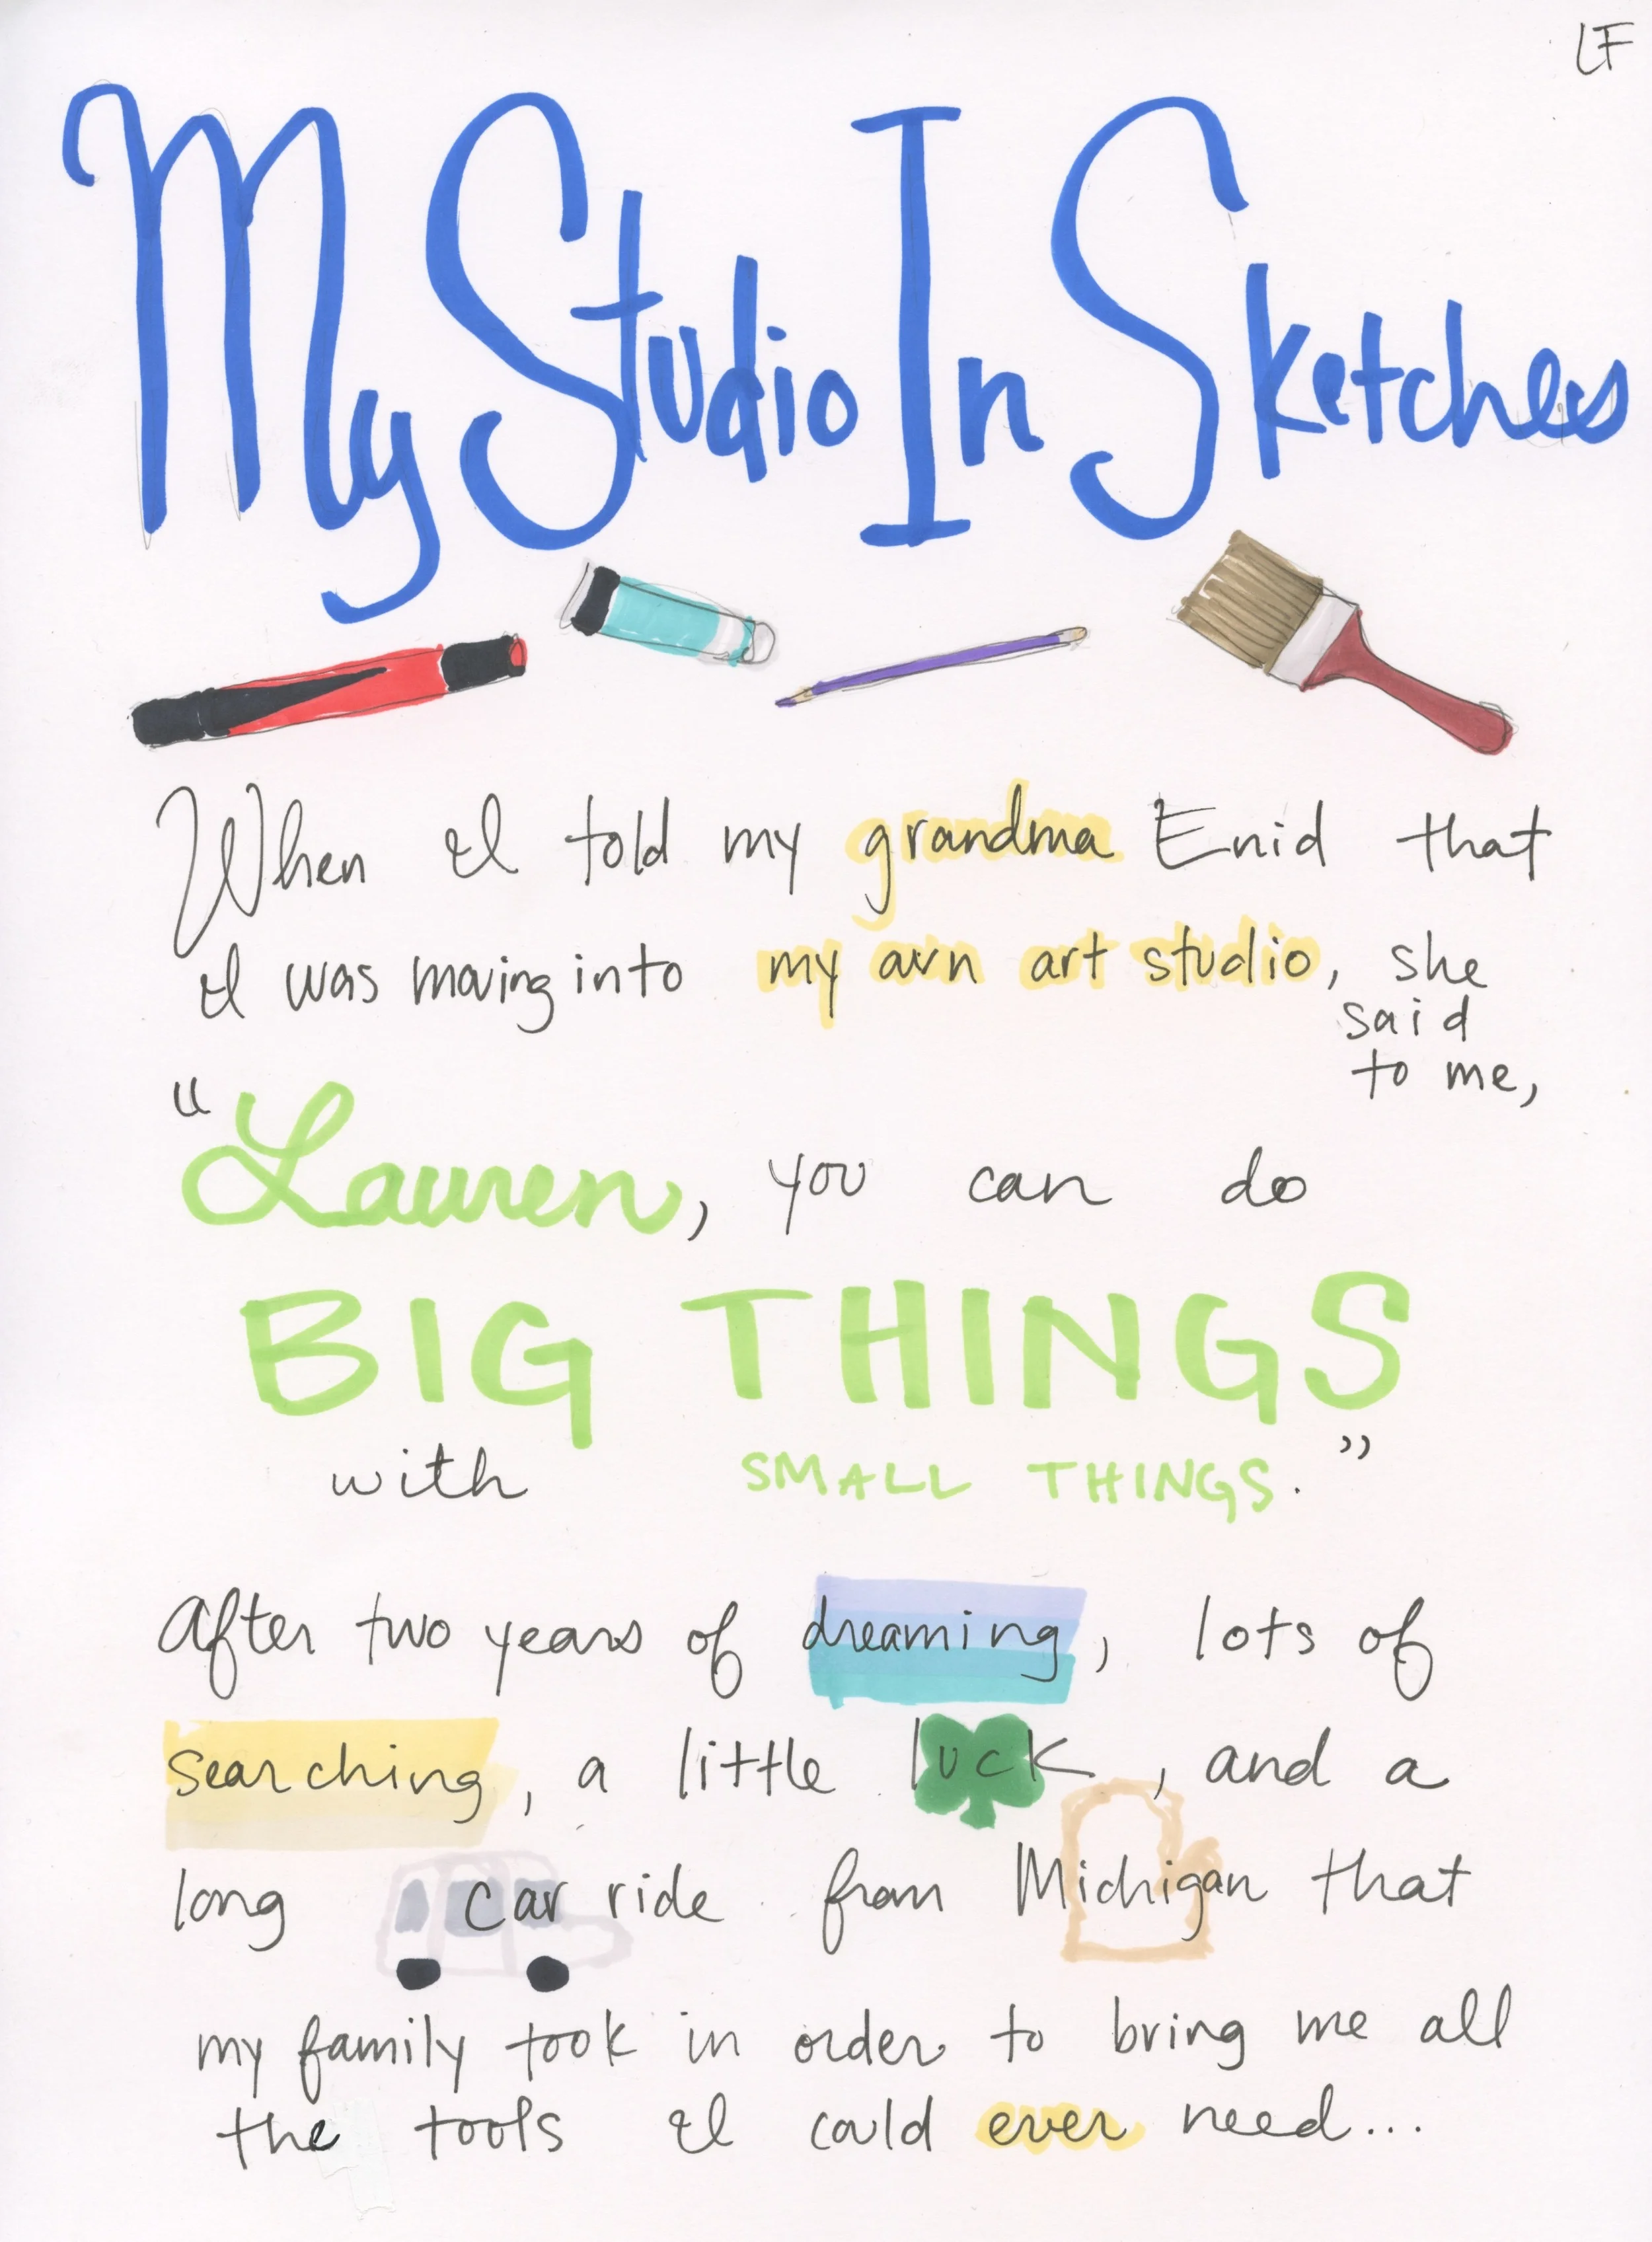 LF
My Studio In Sketches
When I told my grandma Enid that
I was moving into my own art studio, she
said
to me,
"Lauren, you can do
BIG THINGS
with SMALL THINGS."
After two years of dreaming, lots of
searching, a little luck, and a
long car ride from Michigan that
my family took in order to bring me all
the tools I could ever need...